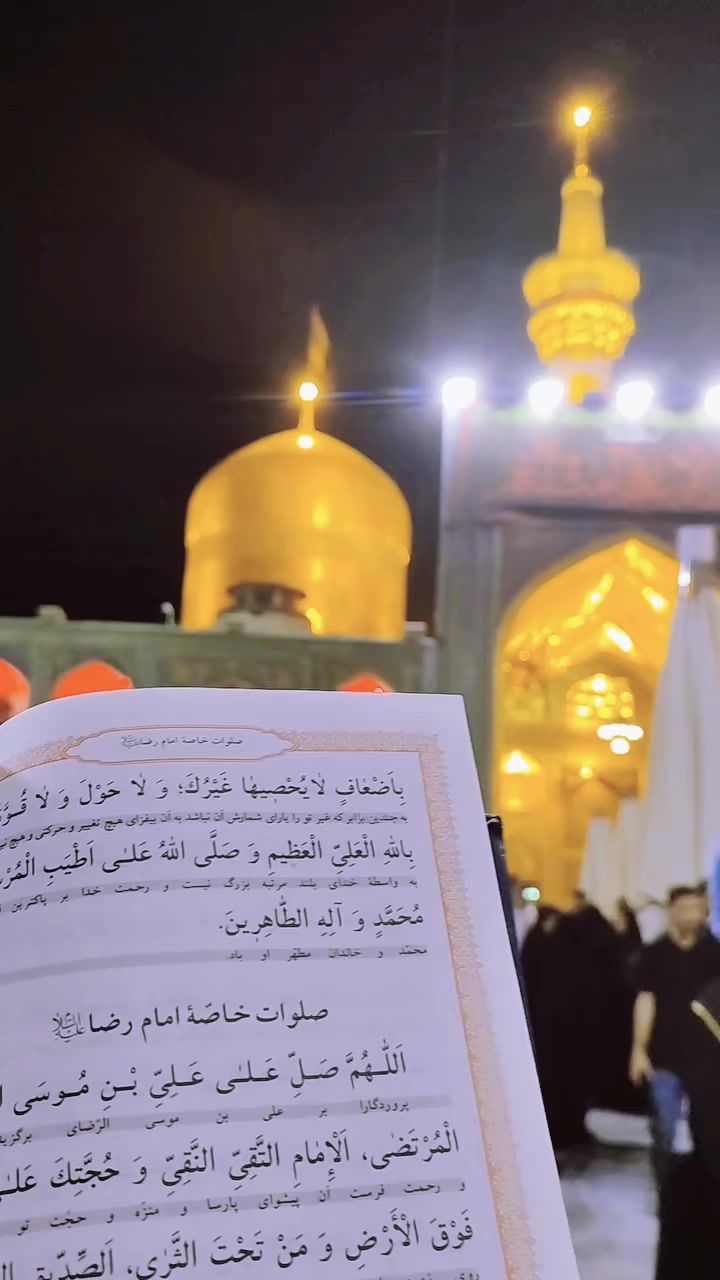 صلوات خاصة امام رضا
بِاَضْعٰافٍ لٰا يُحْصِيهٰا غَيْرُكَ؛ وَ لٰا حَوْلَ وَ لٰا
به چندین برابر که غیر تو را یارای شمارش آن نباشد به آن بیفزای هیچ تغییر و حرکتی و هیچ
بِاللهِ الْعَلِيِّ الْعَظِيمِ وَ صَلَّى اللهُ عَلـٰى اَطْيَبِ
به واسطهٔ خدای بلند مرتبه بزرگ نیست و رحمت خدا بر پاکترین
مُحَمَّدٍ وَ آلِهِ الطّٰاهِرِينَ.
محمّد و خاندان مطهّر او باد.
صلوات خاصّهٔ امام رضا
اَللّٰهُمَّ صَلِّ عَلـٰى عَلِيِّ بْنِ مُوسَى
پروردگارا بر علی بن موسی الرّضای
الْمُرْتَضٰى، اَلْإِمٰامِ التَّقِيِّ النَّقِيِّ وَ حُجَّتِكَ
و رحمت فرست آن پیشوای پارسا و منزّه و حجّت تو
فَوْقَ الْأَرْضِ وَ مَنْ تَحْتَ الثَّرٰى، اَلصِّدّيقِ
روی